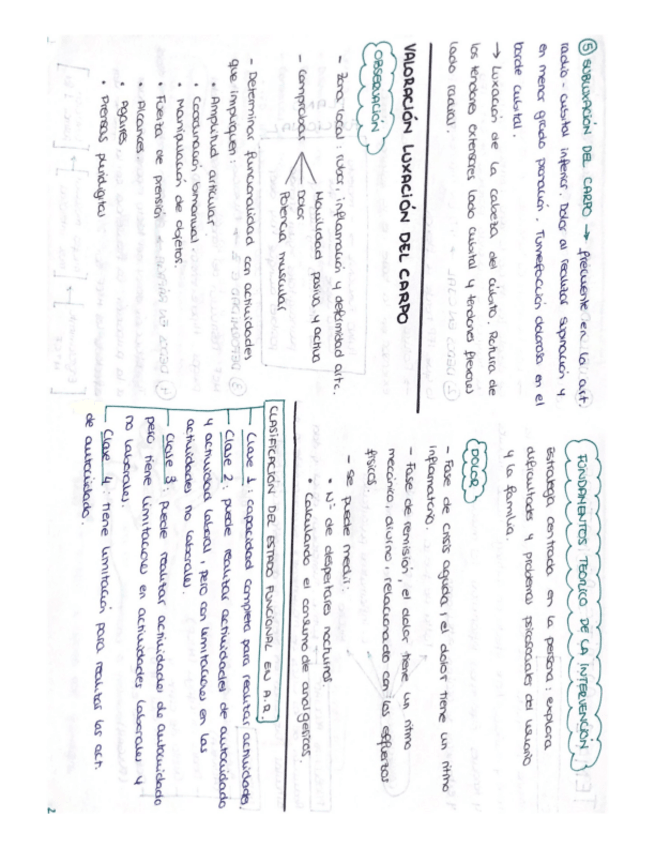 ⑤ SUBLUXACIÓN DEL CARPO → frecuente en la art.
radio-cubital inferior. Dolor al realizar supinación y
en menor grado pronación. Tumefacción dolorosa en el
borde cubital.
→ Luxación de la cabeza del cúbito. Rotura de
los tendones extensores lado cubital y tendones flexores
lado radial.
VALORACIÓN LUXACIÓN DEL CARPO
OBSERVACIÓN
- Zona local: rubor, inflamación y deformidad artc.
- Comprobar
Movilidad pasiva y activa
Dolor
Potencia muscular
- Determinar funcionalidad con actividades
que impliquen:
• Amplitud articular.
• Coordinación bimanual.
• Manipulación de objetos.
• Fuerza de prensión.
• Alcances.
• Agarres.
• Prensas pluridigital
FUNDAMENTOS TEÓRICO DE LA INTERVENCIÓN
Estrategia centrada en la persona: explora
dificultades y problemas psicosociales del usuario
y la familia.
DOLOR
- Fase de crisis aguda, el dolor tiene un ritmo
inflamatorio.
- Fase de remisión, el dolor tiene un ritmo
mecánico, diurno, relacionado con los esfuerzos
físicos.
- Se puede medir:
• Nº de despertares nocturnos.
• Calculando el consumo de analgésicos.
CLASIFICACIÓN DEL ESTADO FUNCIONAL EN A.R.
Clase 1: capacidad completa para realizar actividades.
Clase 2: puede realizar actividades de autocuidado
y actividad laboral, pero con limitaciones en las
actividades no laborales.
Clase 3: puede realizar actividades de autocuidado
pero tiene limitaciones en actividades laborales y
no laborales.
Clase 4: tiene limitación para realizar las act.
de autocuidado.